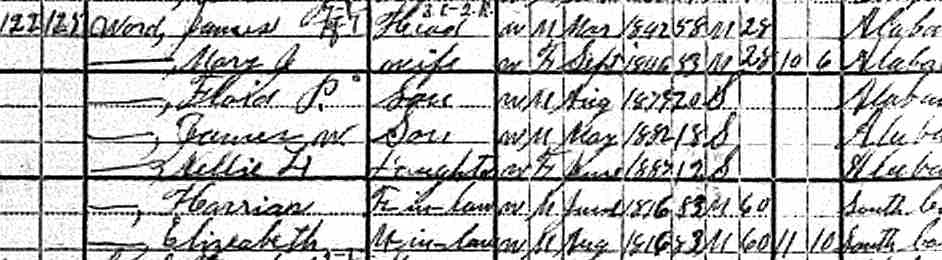 122 125 Word, James Head W M Mar 1842 58 M 28 Alaba
——, Mary J wife W F Sept 1846 53 M 28 10 6 Alaba
——, Floid P. Son W M Aug 1879 20 S Alaba
——, James W. Son W M May 1882 18 S Alaba
——, Nellie H Daughte W F June 1887 12 S Alaba
——, Harrian F-in-law W M June 1816 83 M 60 South Ca
——, Elizabeth M-in-law W M Aug 1816 83 M 60 11 10 South Ca